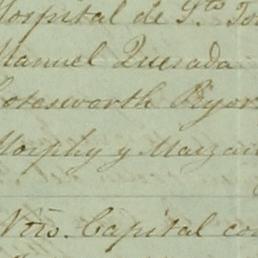 Hospital de Sto To
Manuel Quesada
Cotesworth Pryor
Morphy y Marzan
Ntro. Capital co